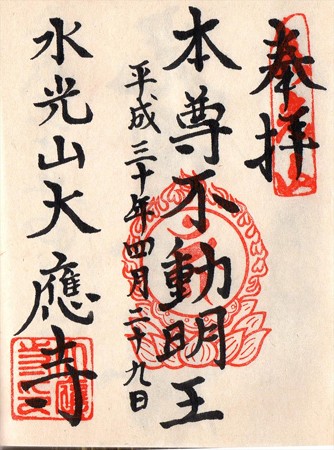 奉拝
本尊不動明王
平成三十年四月二十九日
水光山大應寺